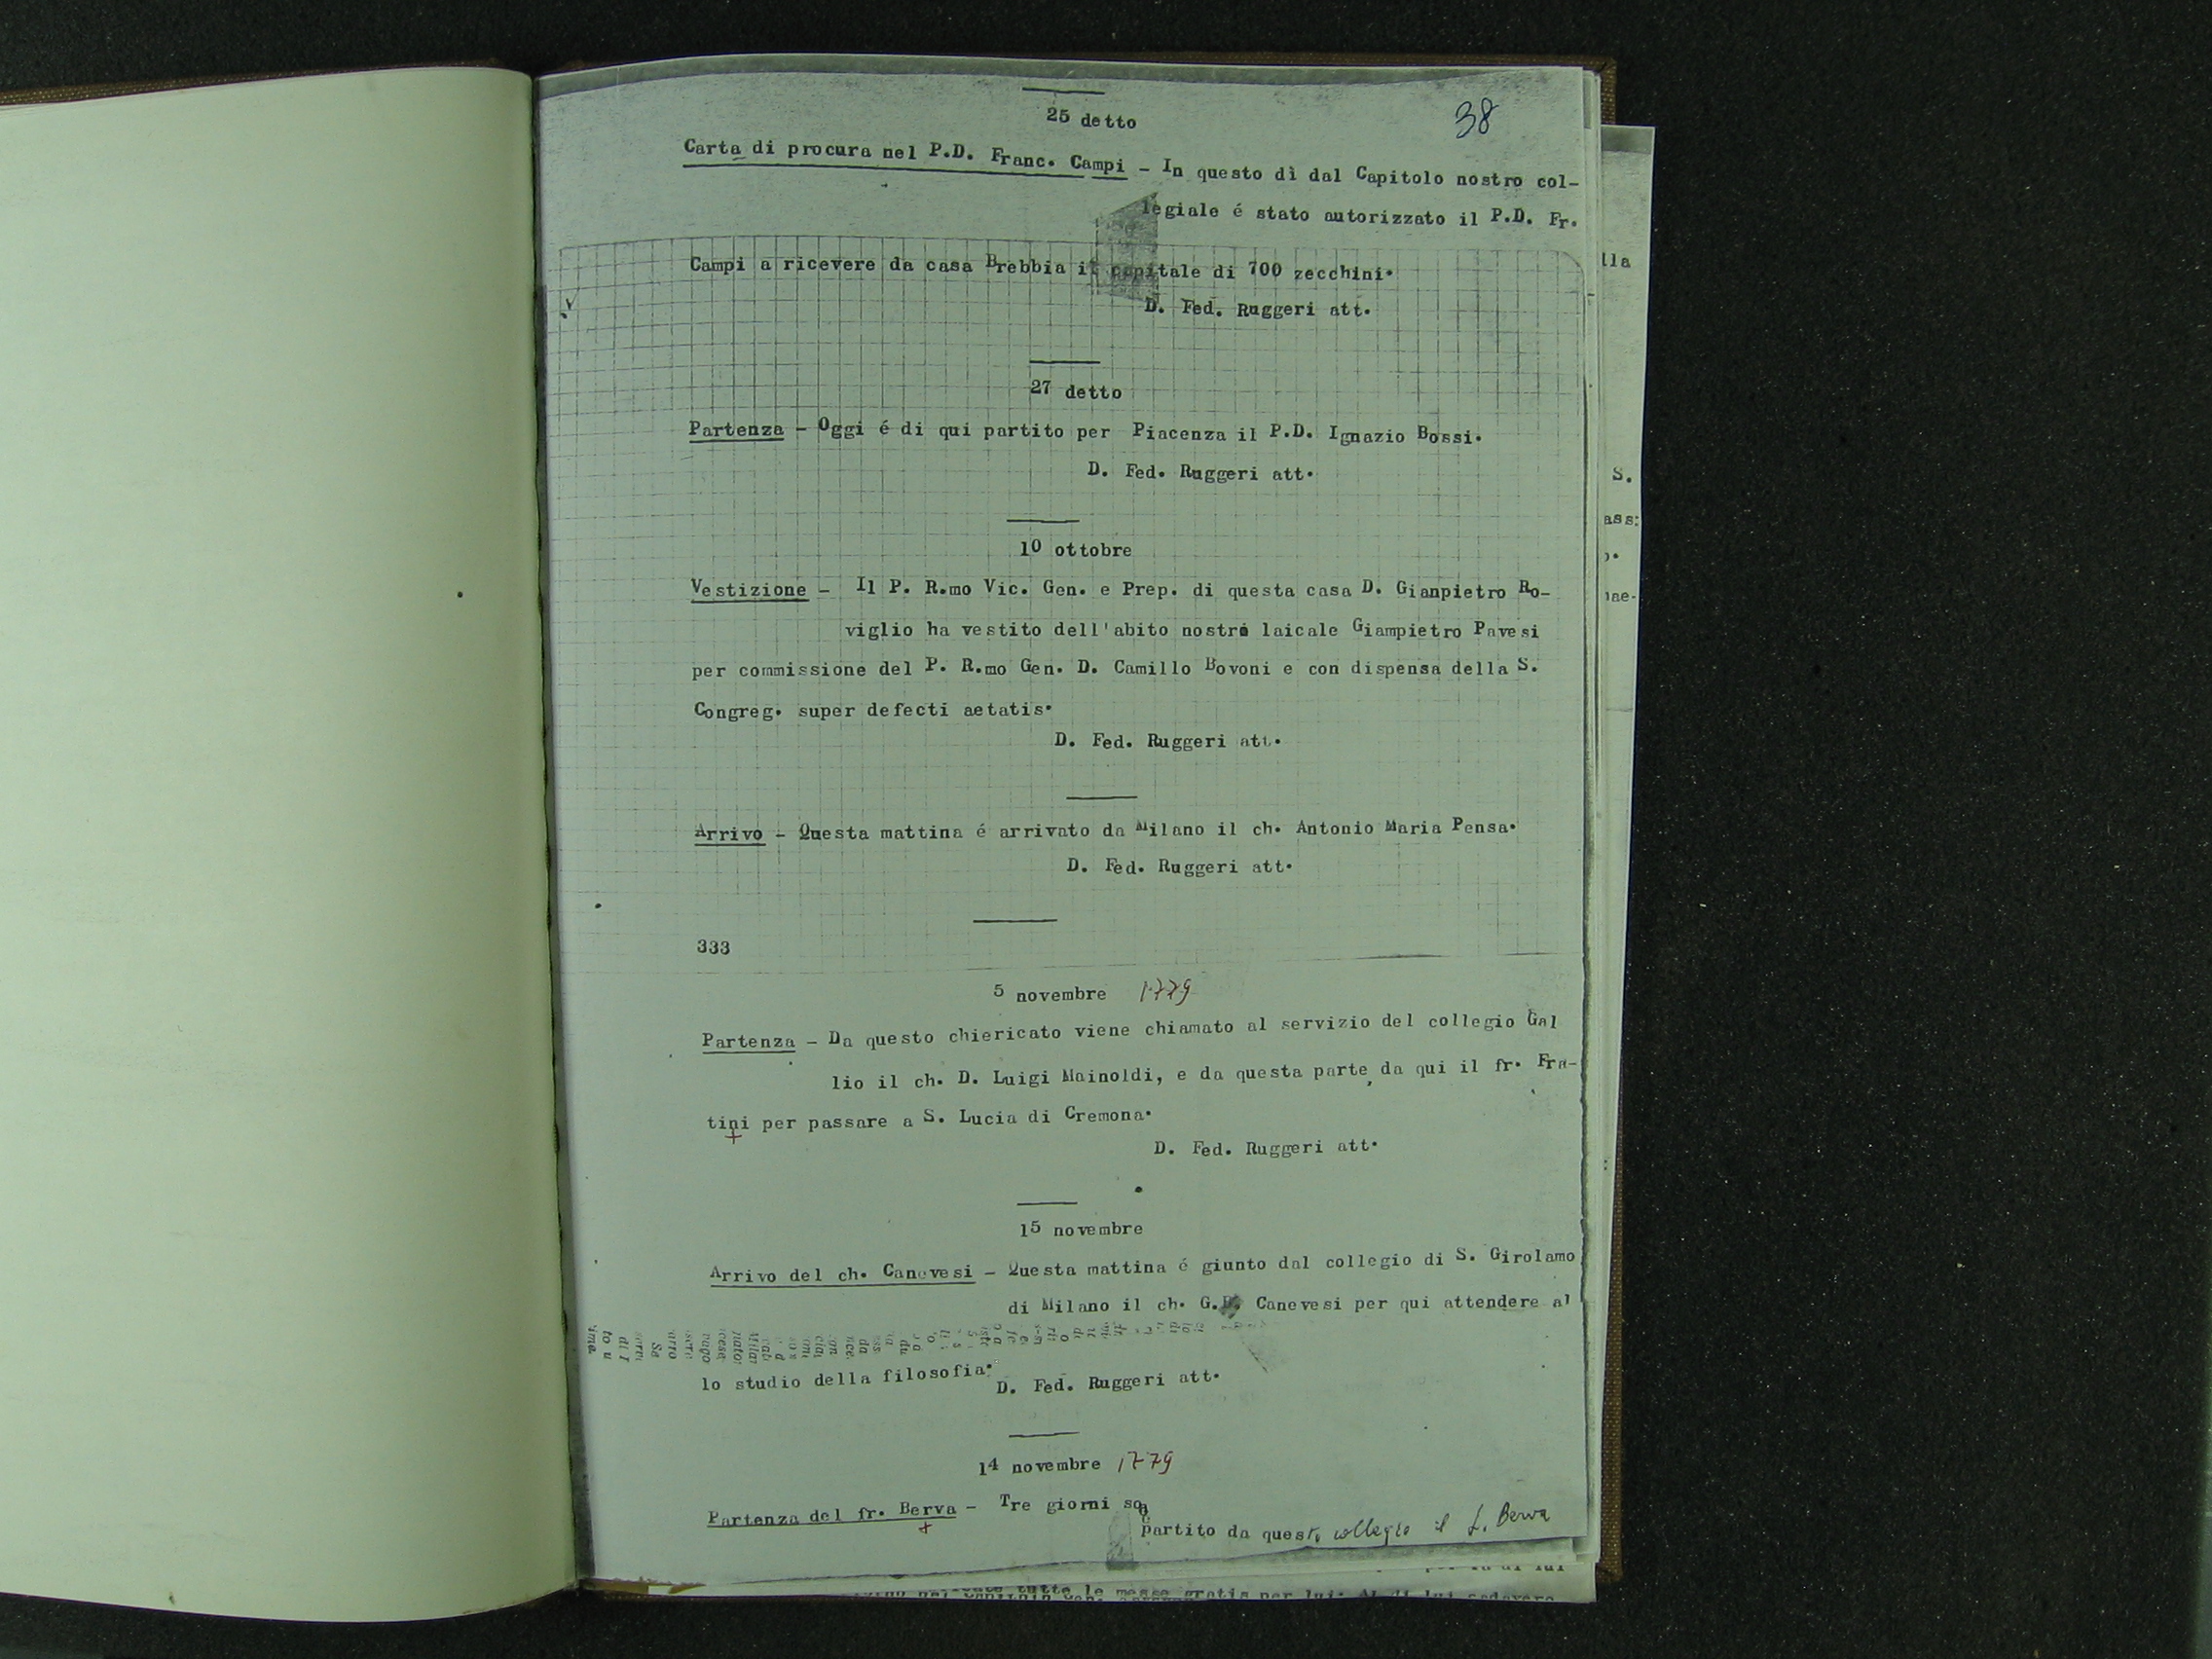 38
25 detto
Carta di procura nel P.D. Franc. Campi - In questo dì dal Capitolo nostro col-
legiale é stato autorizzato il P.D. Fr.
Campi a ricevere da casa Brebbia il capitale di 700 zecchini.
D. Fed. Ruggeri att.
27 detto
Partenza - Oggi é di qui partito per Piacenza il P.D. Ignazio Bossi.
D. Fed. Ruggeri att.
10 ottobre
Vestizione - Il P. R.mo Vic. Gen. e Prep. di questa casa D. Gianpietro Ro-
viglio ha vestito dell'abito nostro laicale Giampietro Pavesi
per commissione del P. R.mo Gen. D. Camillo Bovoni e con dispensa della S.
Congreg. super defecti aetatis.
D. Fed. Ruggeri att.
Arrivo - Questa mattina é arrivato da Milano il ch. Antonio Maria Pensa.
D. Fed. Ruggeri att.
333
5 novembre 1779
Partenza - Da questo chiericato viene chiamato al servizio del collegio Gal
lio il ch. D. Luigi Mainoldi, e da questa parte da qui il fr. Fra-
tini per passare a S. Lucia di Cremona.
D. Fed. Ruggeri att.
15 novembre
Arrivo del ch. Canevesi - Questa mattina é giunto dal collegio di S. Girolamo
di Milano il ch. G. Canevesi per qui attendere al
lo studio della filosofia.
D. Fed. Ruggeri att.
14 novembre 1779
Partenza del fr. Berva - Tre giorni so
partito da questo collegio il f. Berva
lla
S.
ass: